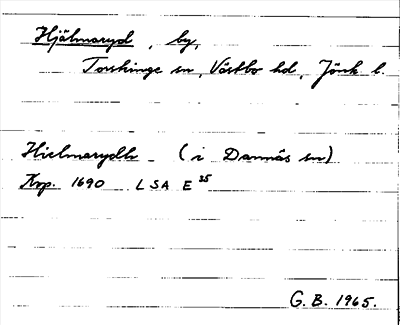 Hjälmaryd, by,
Torskinge sn, Västbo hd, Jönk l.
Hielmarydh (i Dannäs sn)
Kop. 1690 LSA E 35
G. B. 1965.